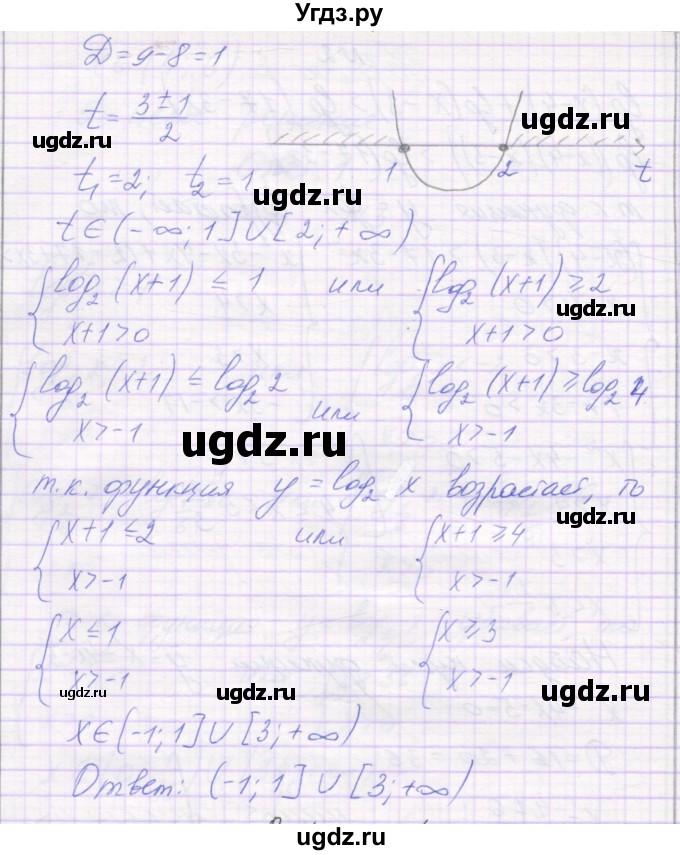 Угдз.ру
Д = 9 - 8 = 1
t = (3 ± 1)/2
ugdz.ru
ugdz.ru
1 2 t
t₁ = 2; t₂ = 1
ugdz.ru
t ∈ (-∞; 1] ∪ [2; +∞)
{ log₂ (x+1) ≤ 1 или { log₂ (x+1) ≥ 2
x+1 > 0 x+1 > 0
ugdz.ru
{ log₂ (x+1) ≤ log₂ 2 или { log₂ (x+1) ≥ log₂ 4
x > -1 x > -1
ugdz.ru
т.к. функция y = log₂ x возрастает, то
ugdz.ru
{ x+1 ≤ 2 или { x+1 ≥ 4
x > -1 x > -1
{ x ≤ 1 { x ≥ 3
x > -1 x > -1
ugdz.ru ugdz.ru ugdz.ru
x ∈ (-1; 1] ∪ [3; +∞)
Ответ: (-1; 1] ∪ [3; +∞)
ugdz.ru
ugdz.ru